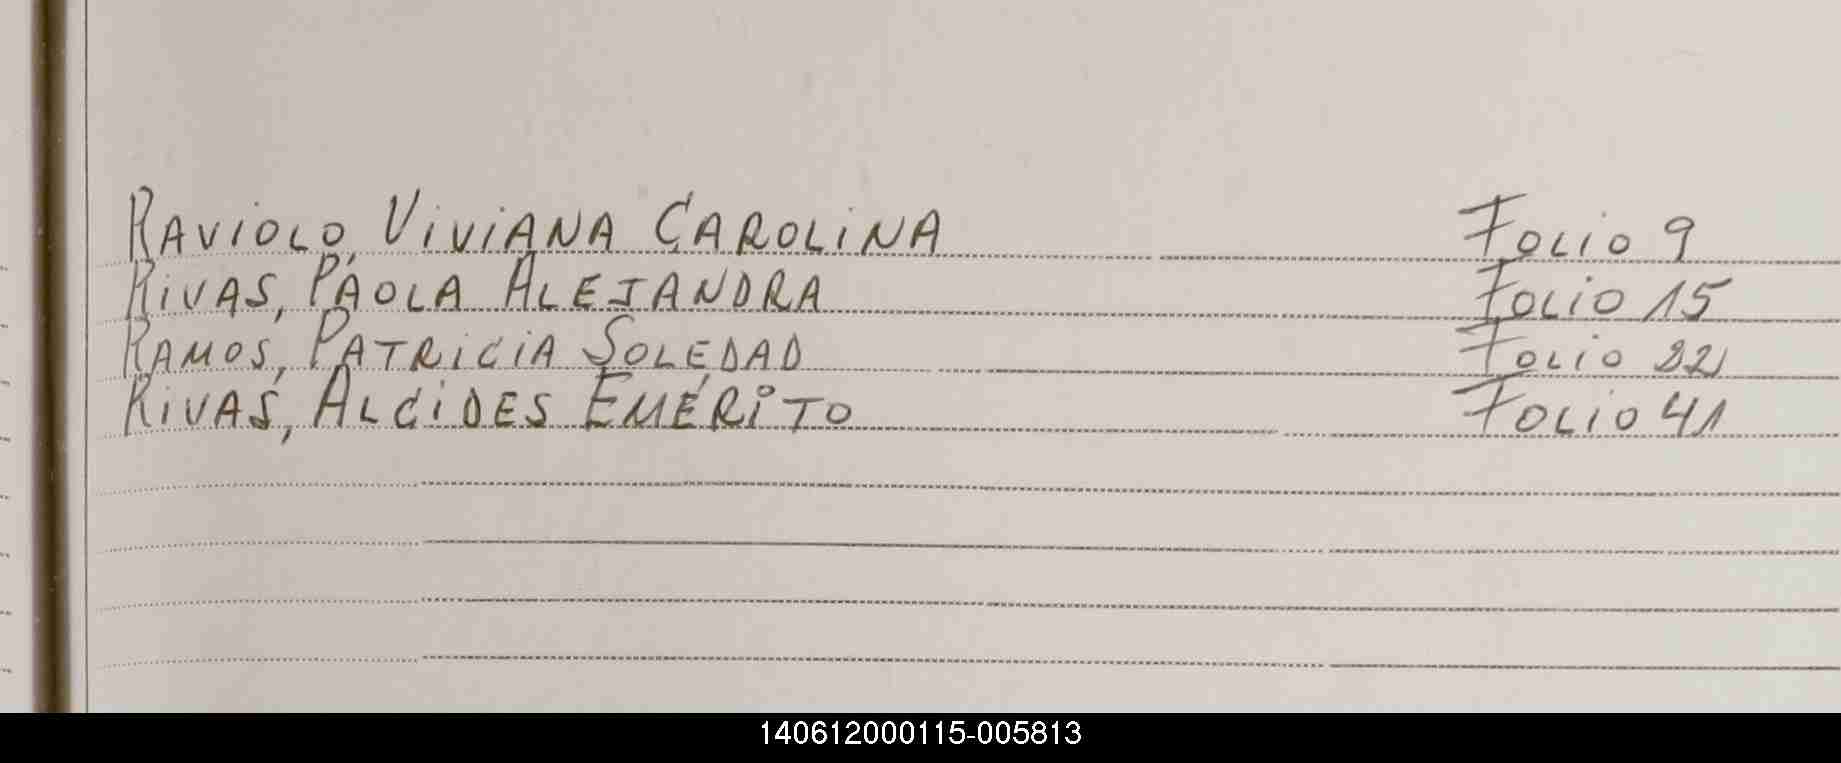 RAVIOLO, VIVIANA CAROLINA Folio 9
RIVAS, PAOLA ALEJANDRA Folio 15
RAMOS, PATRICIA SOLEDAD Folio 22
RIVAS, ALCIDES EMÉRITO Folio 41
140612000115-005813